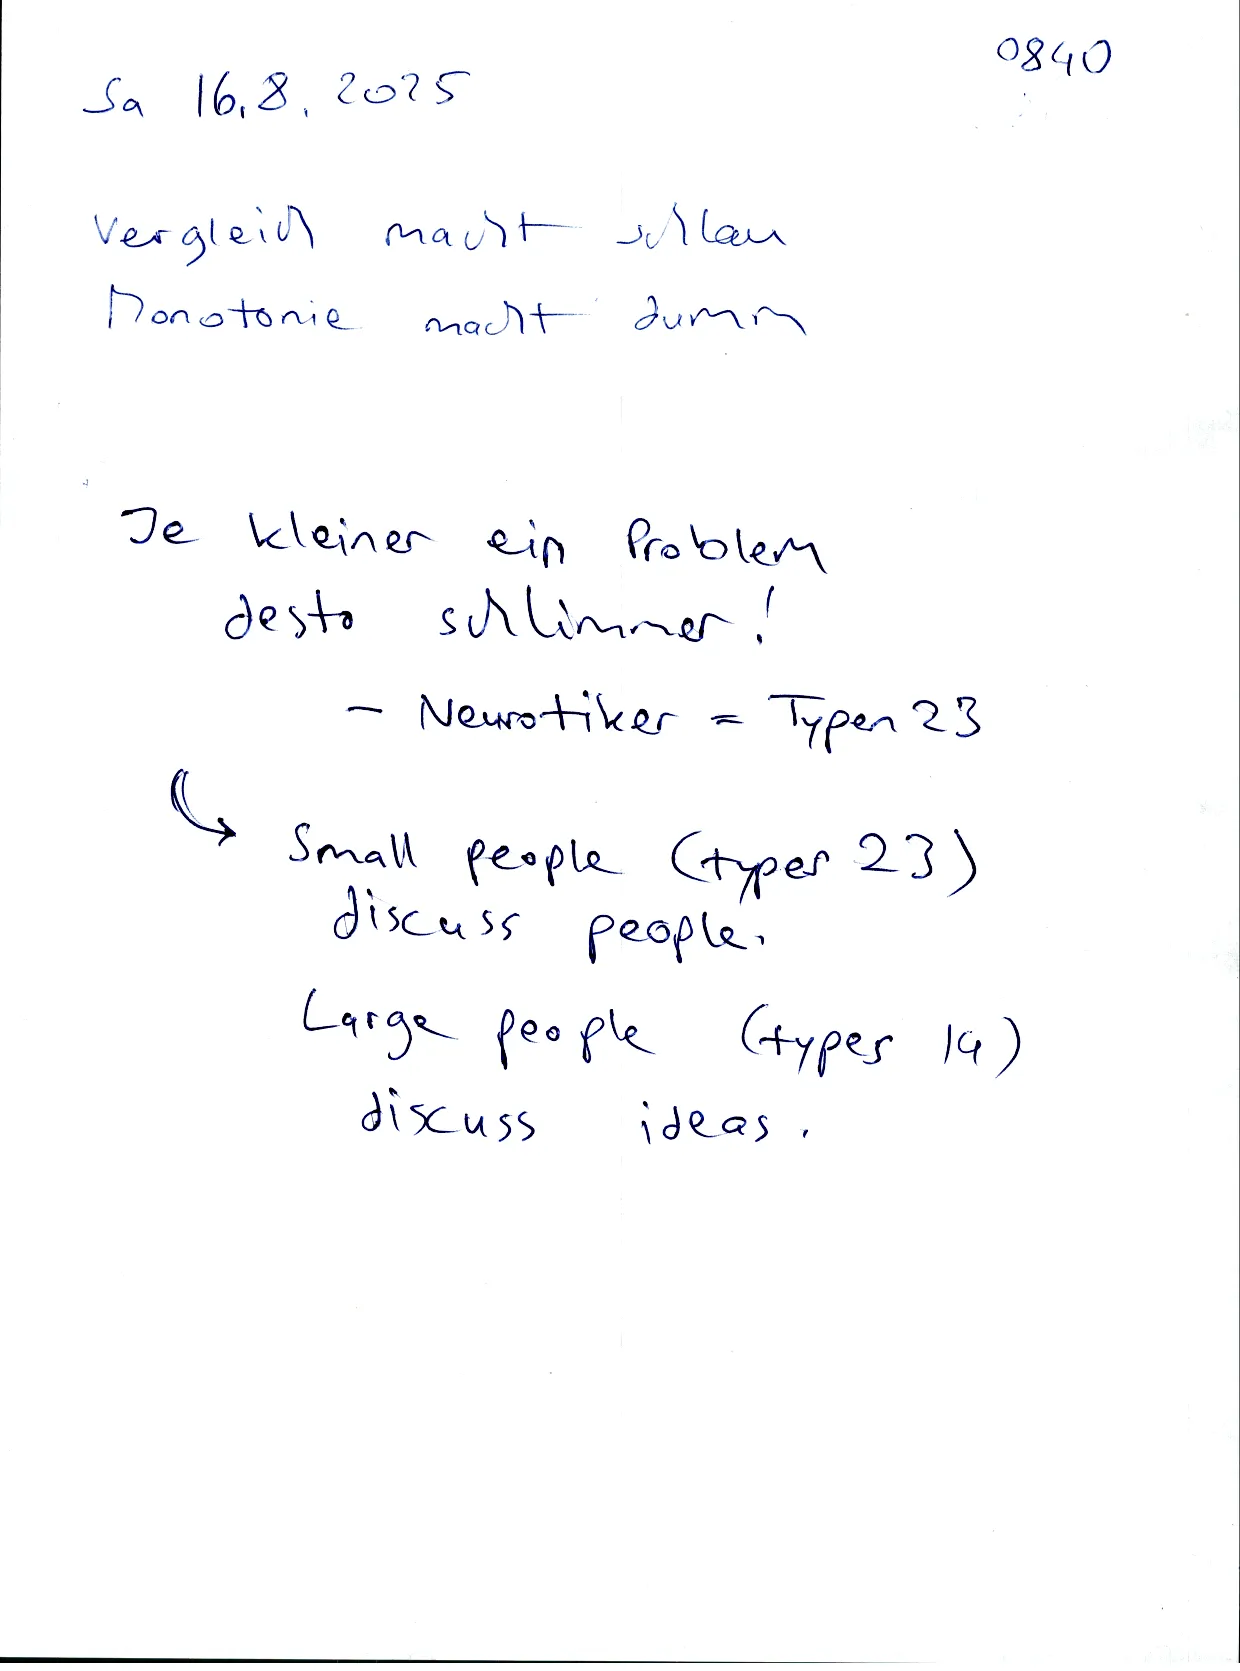 0840
Sa 16.8.2025
Vergleich macht schlau
Monotonie macht dumm
Je kleiner ein Problem
desto schlimmer!
- Neurotiker = Typen 23
Small people (types 23)
discuss people.
Large people (types 14)
discuss ideas.